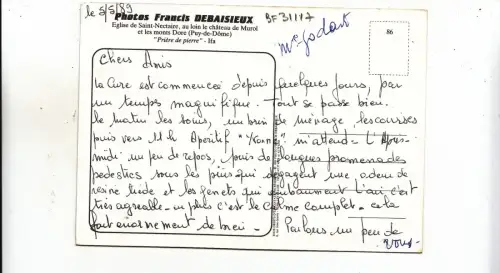 le 5/5/89
Photos Francis DEBAISIEUX
Eglise de Saint-Nectaire, au loin le château de Murol
et les monts Dore (Puy-de-Dôme)
"Prière de pierre" - Ifa
BF 31117
Me Godart
86
Chers Amis
La Cure est commencée depuis quelques jours, par
un temps magnifique. Tout se passe bien.
Le matin les soins, un brin de ménage, les courses
puis vers 11 h Apéritif "Yvonne" m'attend - L'Après-
midi un peu de repos, puis de longues promenades
pédestres sous les pins qui dégagent une odeur de
résine tiède et les genets qui embaument l'air c'est
très agréable - en plus c'est le calme complet - cela
fait énormément de bien -
Parlons un peu de
vous -